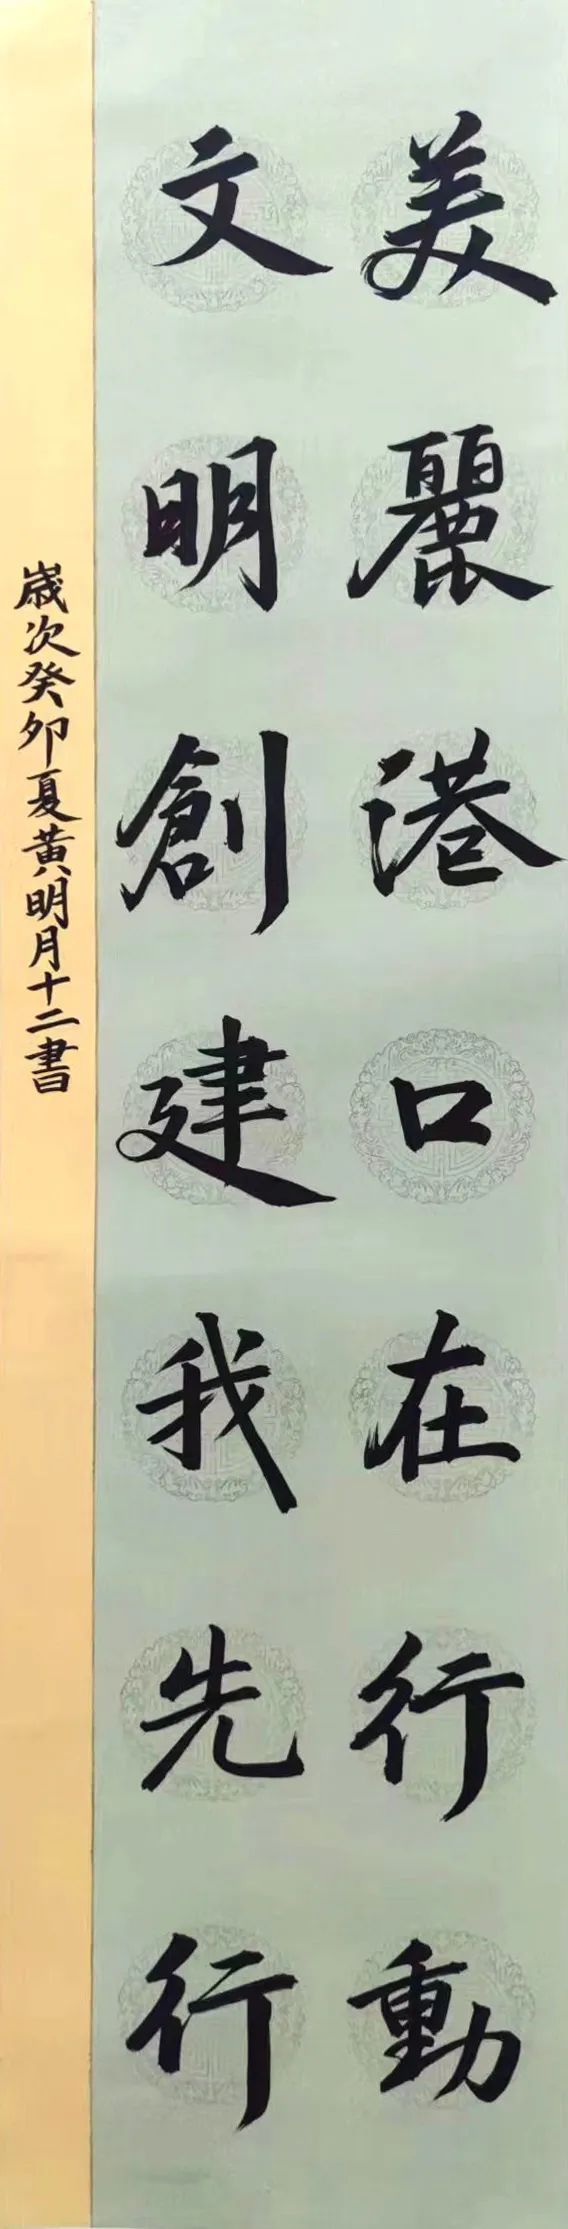 美麗港口在行動
文明創建我先行
歲次癸卯夏黃明月十二書